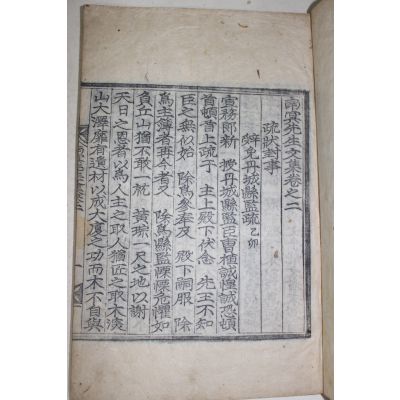 南冥先生文集卷之二
疏狀封事
辭免丹城縣監疏 乙卯
宣務郞新 授丹城縣監臣曺植誠惶誠恐頓
首頓首上疏于 主上殿下伏念 先王不知
臣之無似始 除爲參奉及 殿下嗣服 除
爲主簿者再今者又 除爲縣監慄慄危懼如
負丘山猶不敢一就 黃琮一尺之地以謝
天日之恩者以爲人主之取人猶匠之取木深
山大澤靡有遺材以成大廈之功而木不自與